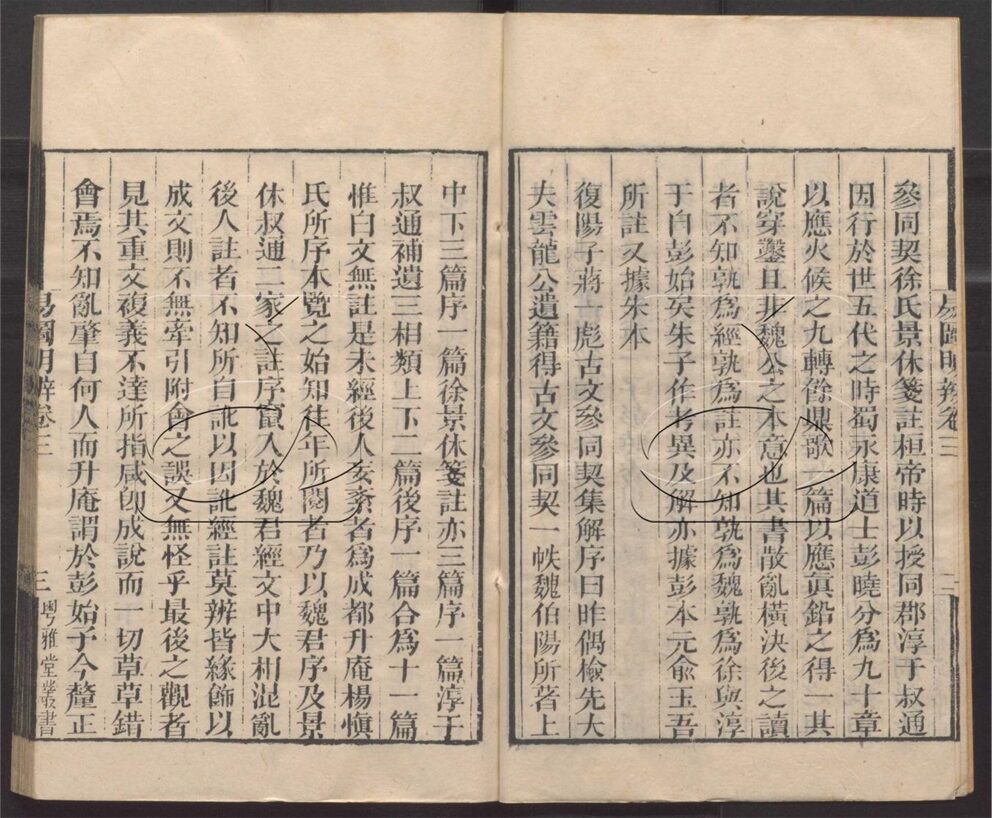 易圖明辨卷三
二
參同契徐氏景休箋註桓帝時以授同郡淳于叔通
因行於世五代之時蜀永康道士彭曉分為九十章
以應火候之九轉餘鼎歌一篇以應眞鉛之得一其
說穿鑿且非魏公之本意也其書散亂橫決後之讀
者不知孰爲經孰爲註亦不知孰爲魏孰爲徐與淳
于自彭始矣朱子作考異及解亦據彭本元俞玉吾
所註又據朱本
復陽子蔣一彪古文參同契集解序曰昨偶檢先大
夫雲龍公遺籍得古文參同契一帙魏伯陽所著上
中下三篇序一篇徐景休箋註亦三篇序一篇淳于
叔通補遺三相類上下二篇後序一篇合爲十一篇
惟白文無註是未經後人妄紊者爲成都升庵楊愼
氏所序本覽之始知往年所閱者乃以魏君序及景
休叔通二家之註序竄入於魏君經文中大相混亂
後人註者不知所自訛以因訛經註莫辨皆緣飾以
成文則不無牽引附會之誤又無怪乎最後之觀者
見其重文複義不達所指咸卽成說而一切草草錯
會焉不知亂肇自何人而升庵謂於彭始予今釐正
易圖明辨卷三
三
粵雅堂叢書